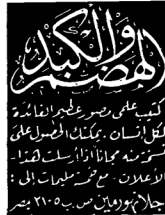 الهضم والكبد
كتيب علمى مصور عظيم الفائدة
لكل انسان . يمكنك الحصول على
نسخة منه مجاناً اذا أرسلت هذا -
الاعلان - مع خمسة مليمات الى :
جلانهورمين ص.ب ٢١٠٥ مصر